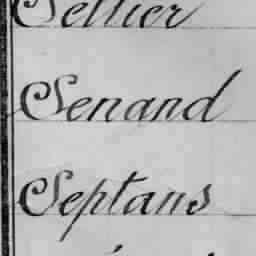 Sellier
Senand
Septans